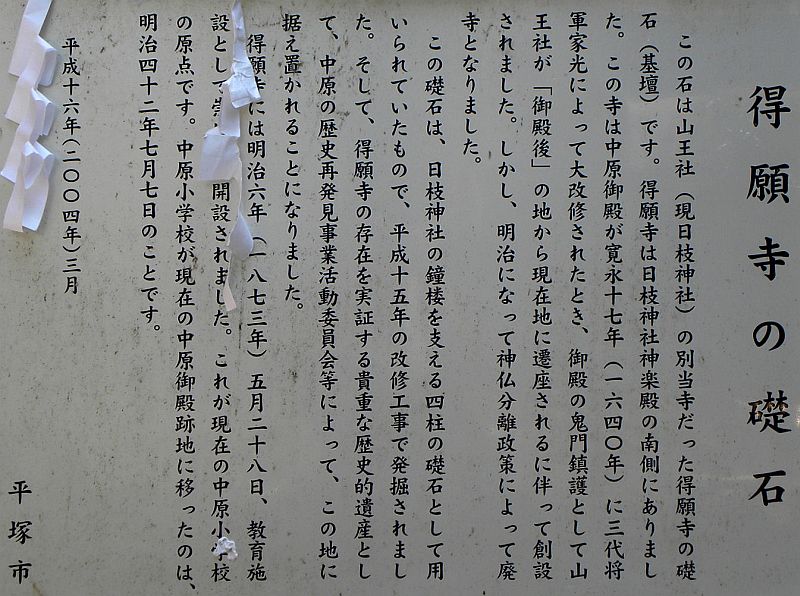 得願寺の礎石
この石は山王社（現日枝神社）の別当寺だった得願寺の礎
石（基壇）です。得願寺は日枝神社神楽殿の南側にありまし
た。この寺は中原御殿が寛永十七年（一六四〇年）に三代将
軍家光によって大改修されたとき、御殿の鬼門鎮護として山
王社が「御殿後」の地から現在地に遷座されるに伴って創設
されました。しかし、明治になって神仏分離政策によって廃
寺となりました。
この礎石は、日枝神社の鐘楼を支える四柱の礎石として用
いられていたもので、平成十五年の改修工事で発掘されまし
た。そして、得願寺の存在を実証する貴重な歴史的遺産とし
て、中原の歴史再発見事業活動委員会等によって、この地に
据え置かれることになりました。
得願寺には明治六年（一八七三年）五月二十八日、教育施
設として崇 開設されました。これが現在の中原小学校
の原点です。中原小学校が現在の中原御殿跡地に移ったのは、
明治四十二年七月七日のことです。
平成十六年（二〇〇四年）三月
平塚市